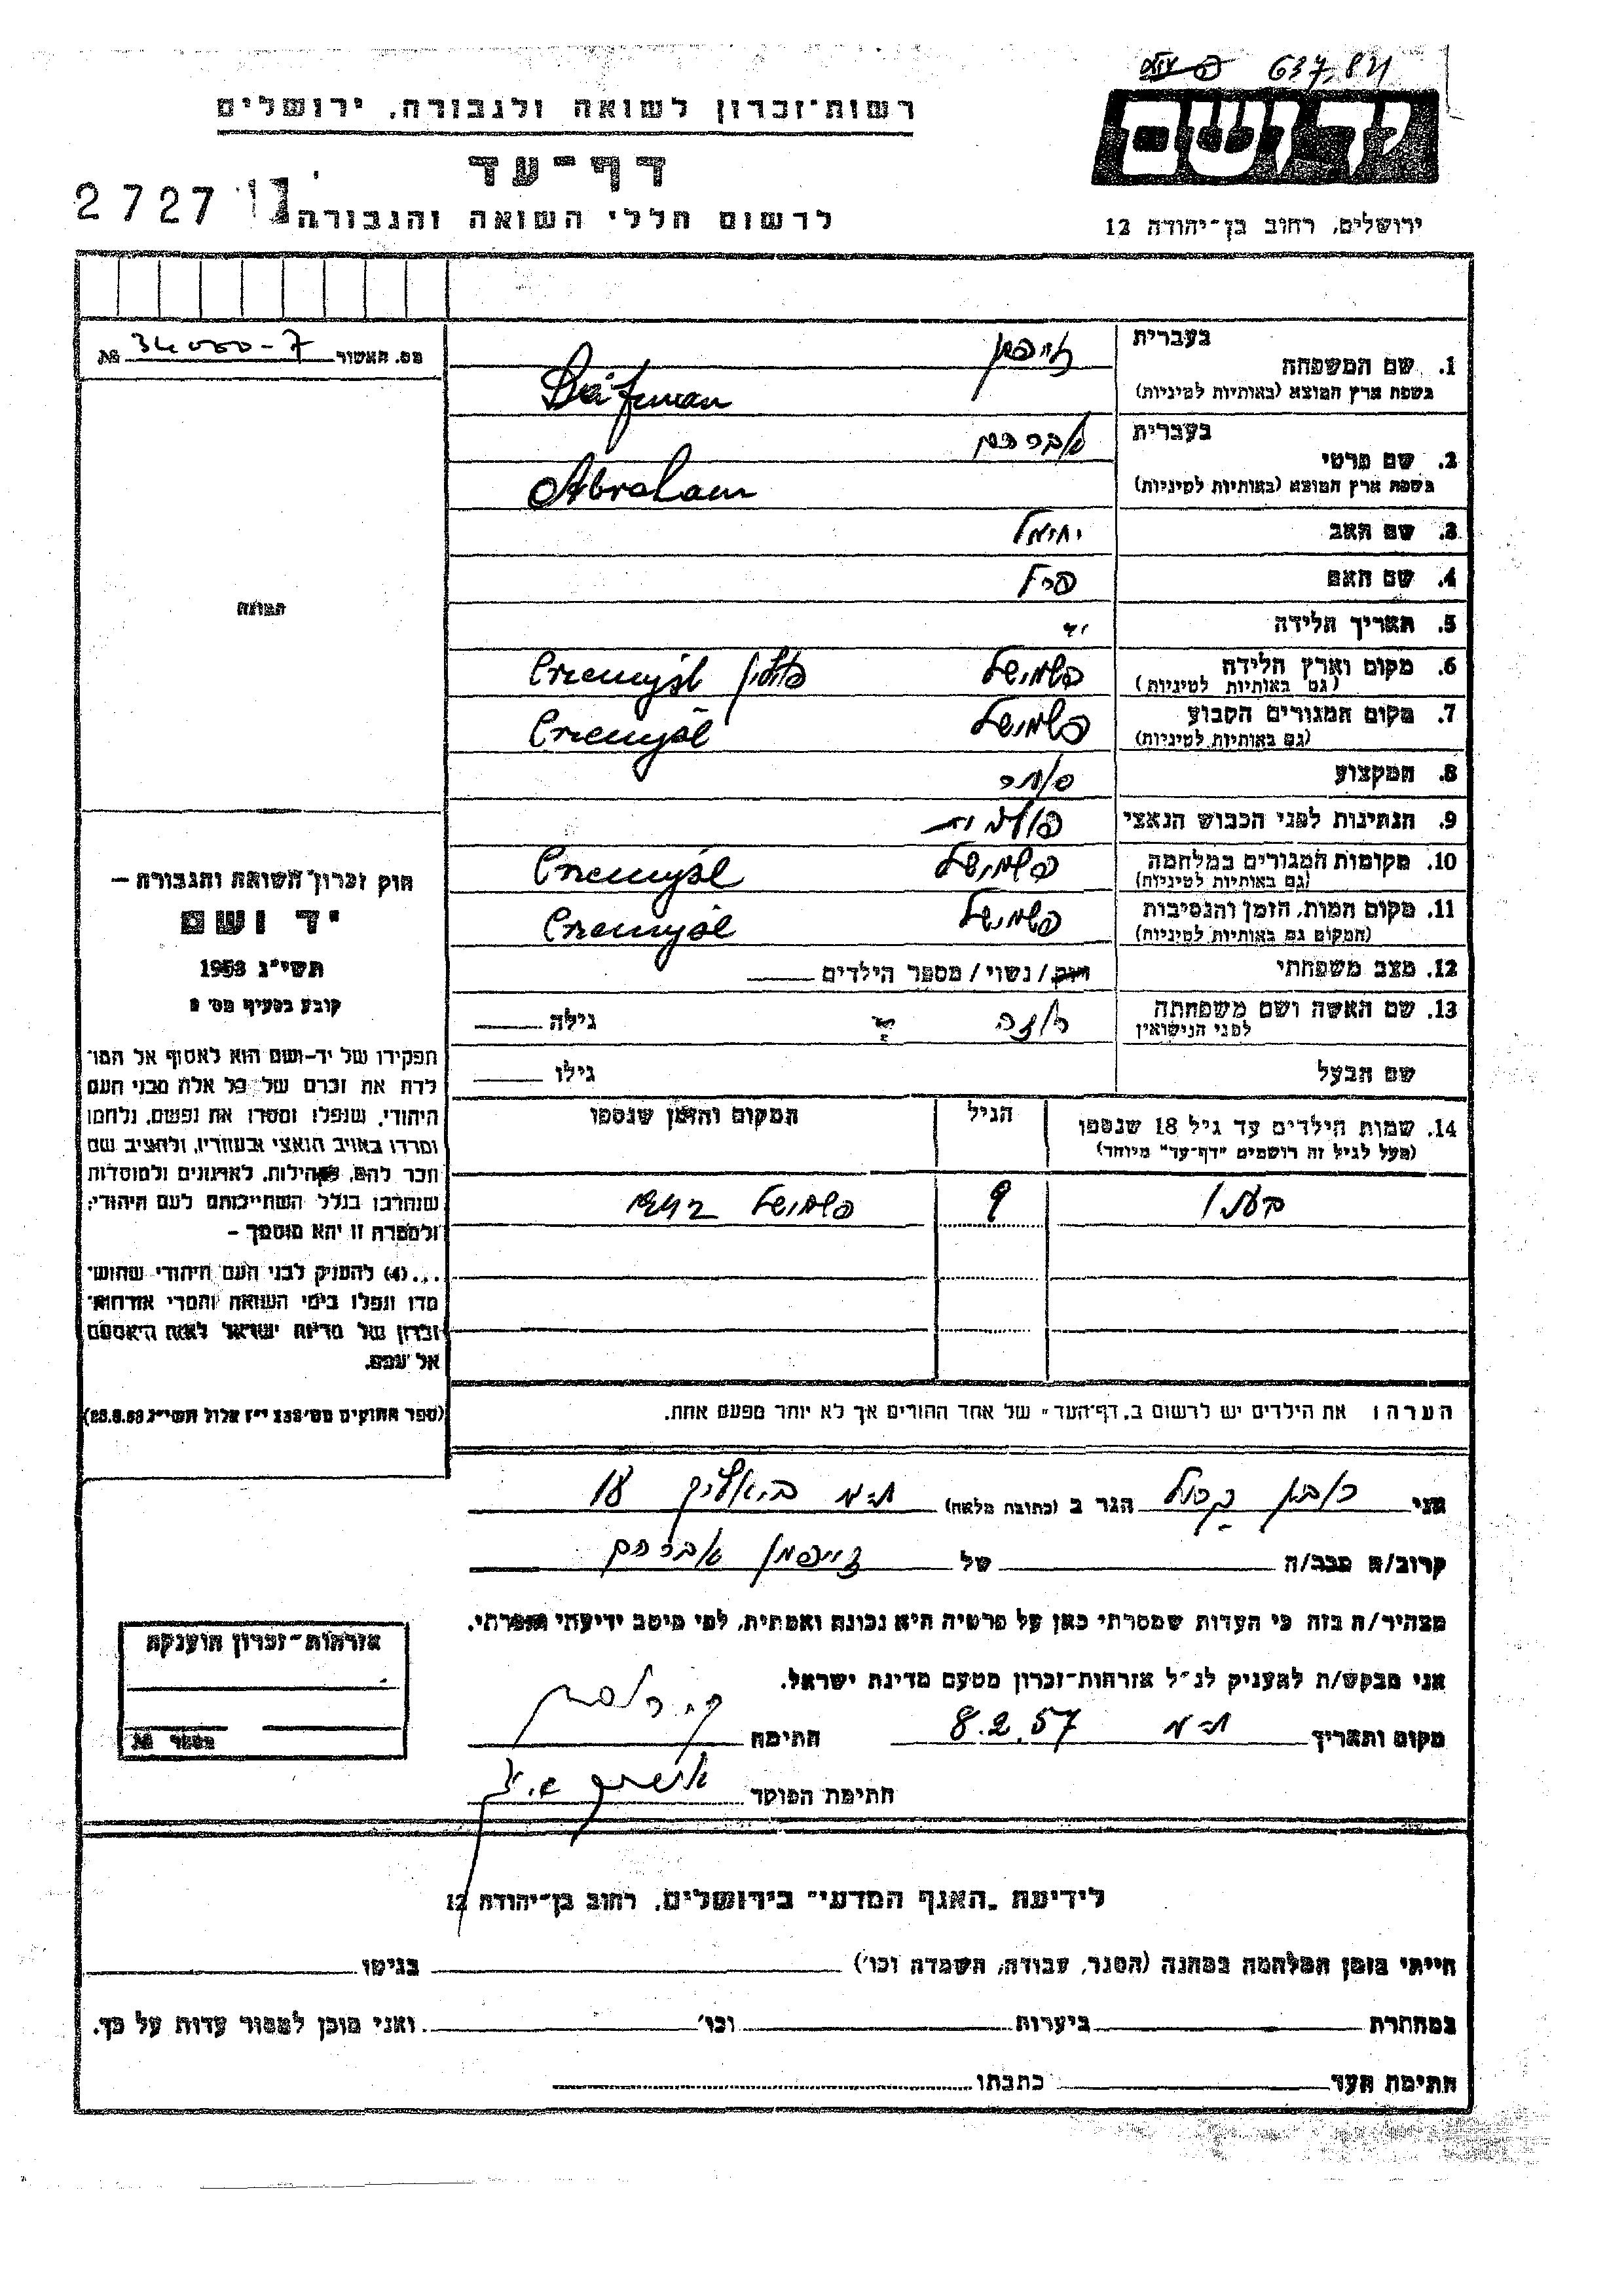 637/84
רשות־זכרון לשואה ולגבורה, ירושלים
יד ושם
דף־עד
2727
לרשום חללי השואה והגבורה
ירושלים, רחוב בן־יהודה 12
מס. האשור 34000-7 №
בעברית
1. שם המשפחה
בשפת ארץ המוצא (באותיות לטיניות)
בעברית אברהם
2. שם פרטי
בשפת ארץ המוצא (באותיות לטיניות) Abraham
3. שם האב
4. שם האם
5. תאריך הלידה
6. מקום וארץ הלידה פשמישל פולין Przemyśl
(גם באותיות לטיניות)
7. מקום המגורים הקבוע פשמישל Przemyśl
(גם באותיות לטיניות)
8. המקצוע סוחר
9. הנתינות לפני הכבוש הנאצי פולנית
10. מקומות המגורים במלחמה פשמישל Przemyśl
(גם באותיות לטיניות)
11. מקום המות, הזמן והנסיבות פשמישל Przemyśl
(המקום גם באותיות לטיניות)
12. מצב משפחתי רווק / נשוי / מספר הילדים
13. שם האשה ושם משפחתה רוזה גילה
לפני הנישואין
שם הבעל גילו
14. שמות הילדים עד גיל 18 שנספו הגיל המקום והזמן שנספו
(מעל לגיל זה רושמים "דף־עד" מיוחד)
9 פשמישל
הערה: את הילדים יש לרשום ב„דף־העד" של אחד ההורים אך לא יותר מפעם אחת.
התמונה
חוק זכרון השואה והגבורה —
יד ושם
תשי"ג 1953
קובע בסעיף מס' 2
תפקידו של יד-ושם הוא לאסוף אל המו־
לדת את זכרם של כל אלה מבני העם
היהודי, שנפלו ומסרו את נפשם, נלחמו
ומרדו באויב הנאצי ובעוזריו, ולהציב שם
וזכר להם, לקהילות, לארגונים ולמוסדות
שנחרבו בגלל השתייכותם לעם היהודי;
ולמטרה זו יהא מוסמך –
...(4) להעניק לבני העם היהודי שהוש־
מדו ונפלו בימי השואה והמרי אזרחות־
זכרון של מדינת ישראל לאות היאספם
אל עמם.
(ספר החוקים מס' 132 י"ז אלול תשי"ג 28.8.53)
אני הגר ב (כתובת מלאה) ת"א ביאליק
קרוב/ה מכר/ה של זייפמן אברהם
מצהיר/ה בזה כי העדות שמסרתי כאן על פרטיה היא נכונה ואמתית, לפי מיטב ידיעתי והכרתי.
אני מבקש/ת להעניק לנ"ל אזרחות־זכרון מטעם מדינת ישראל.
מקום ותאריך ת"א 8.2.57 חתימה
חתימת הפוקד
אזרחות־זכרון הוענקה
מספר №
לידיעת „האגף המדעי" בירושלים, רחוב בן־יהודה 12
הייתי בזמן המלחמה במחנה (הסגר, עבודה, השמדה וכו') בגיטו
במחתרת ביערות וכו' ואני מוכן למסור עדות על כך.
חתימת העד כתבתו